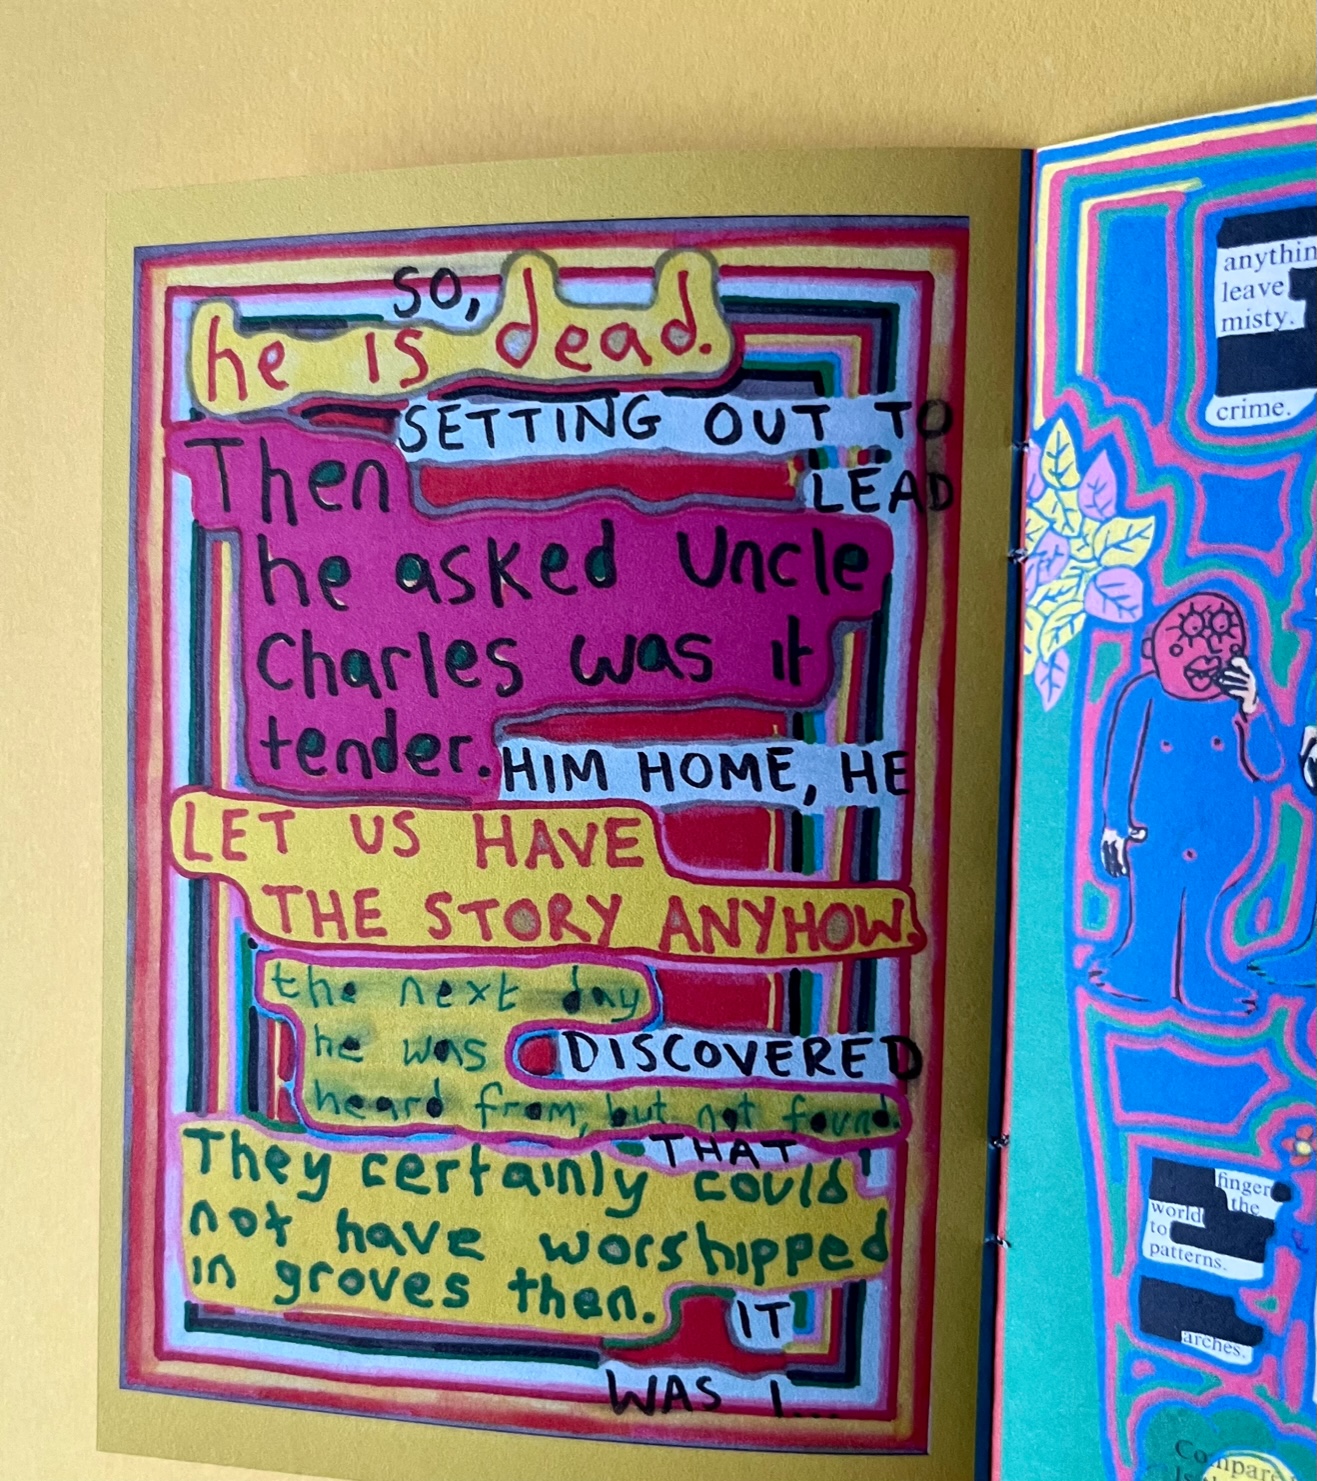 SO,
he is dead.
SETTING OUT TO
Then
LEAD
he asked Uncle
Charles was it
tender.
HIM HOME, HE
LET US HAVE
THE STORY ANYHOW.
the next day
he was
DISCOVERED
heard from, but not found.
THAT
They certainly could
not have worshipped
in groves then.
IT
WAS I...
leave
misty.
crime.
finger
world the
to
patterns.
arches.